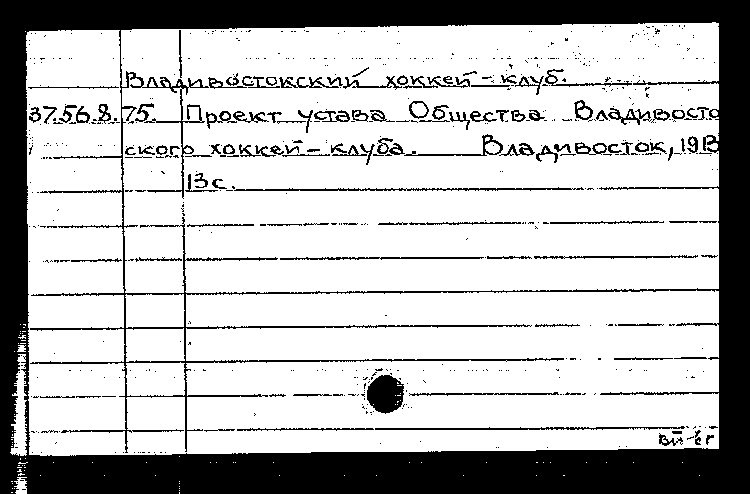 Владивостокский хоккей-клуб.
37.56.8.75. Проект устава Общества Владивосто
ского хоккей-клуба. Владивосток, 1913
13 с.